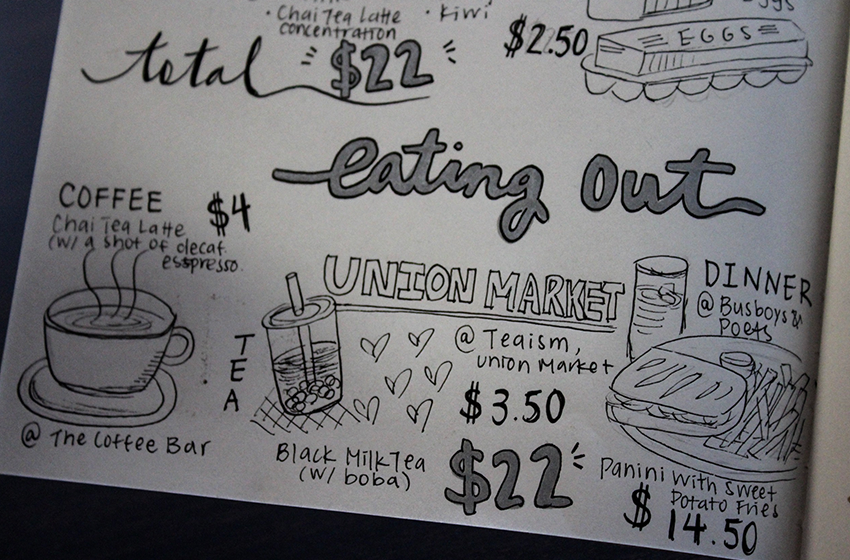 • Chai Tea Latte
concentration
• Kiwi
$2.50
EGGS
total $22
eating out
COFFEE
$4
Chai Tea Latte
(w/ a shot of decaf
esspresso.
@ The Coffee Bar
UNION MARKET
TEA
@ Teaism,
Union Market
$3.50
Black Milk Tea
(w/ boba)
$22
DINNER
@ Busboys &
Poets
Panini with sweet
Potato Fries
$14.50